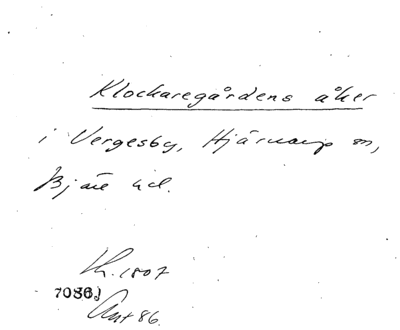 Klockaregårdens åker
i Vergesby, Hjärnarp sn,
Bjäre hd.
Lh. 1807
7086)
Ant 86.